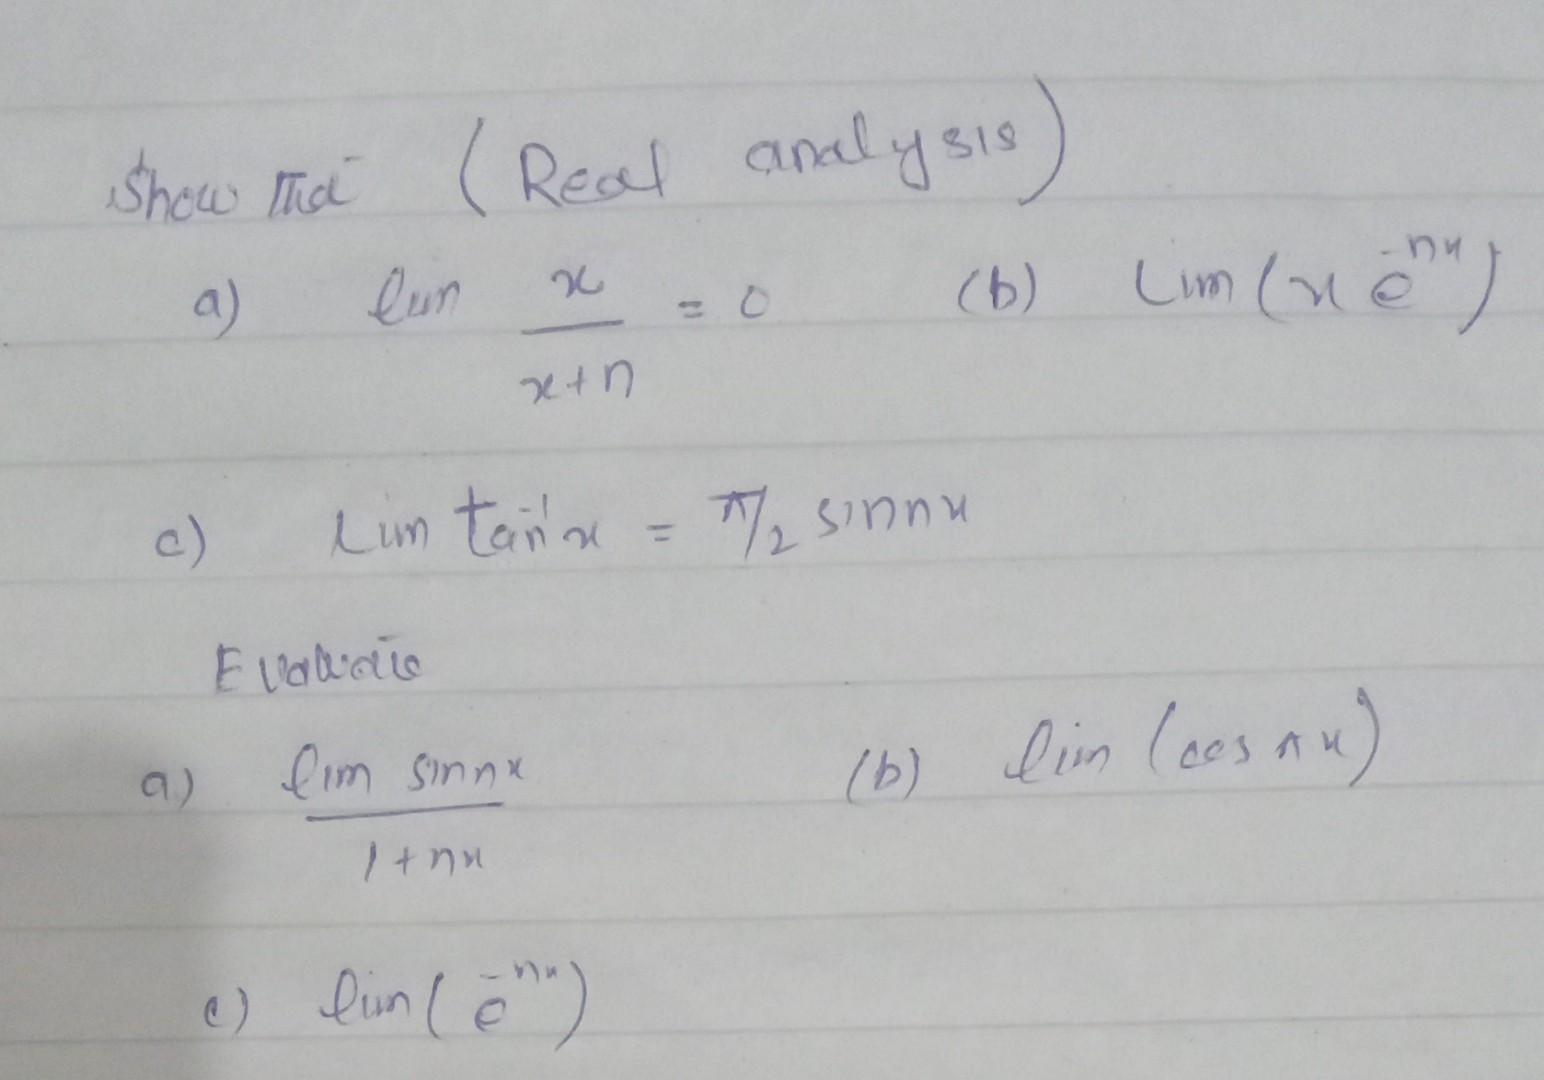 Show that (Real analysis)
a) lim x/(x+n) = 0 (b) Lim (x e^-nx)
c) Lim tan^-1 x = π/2 sin nx
Evaluate
a) lim sin nx / 1+nx (b) lim (cos πx)
c) lim (e^-nx)